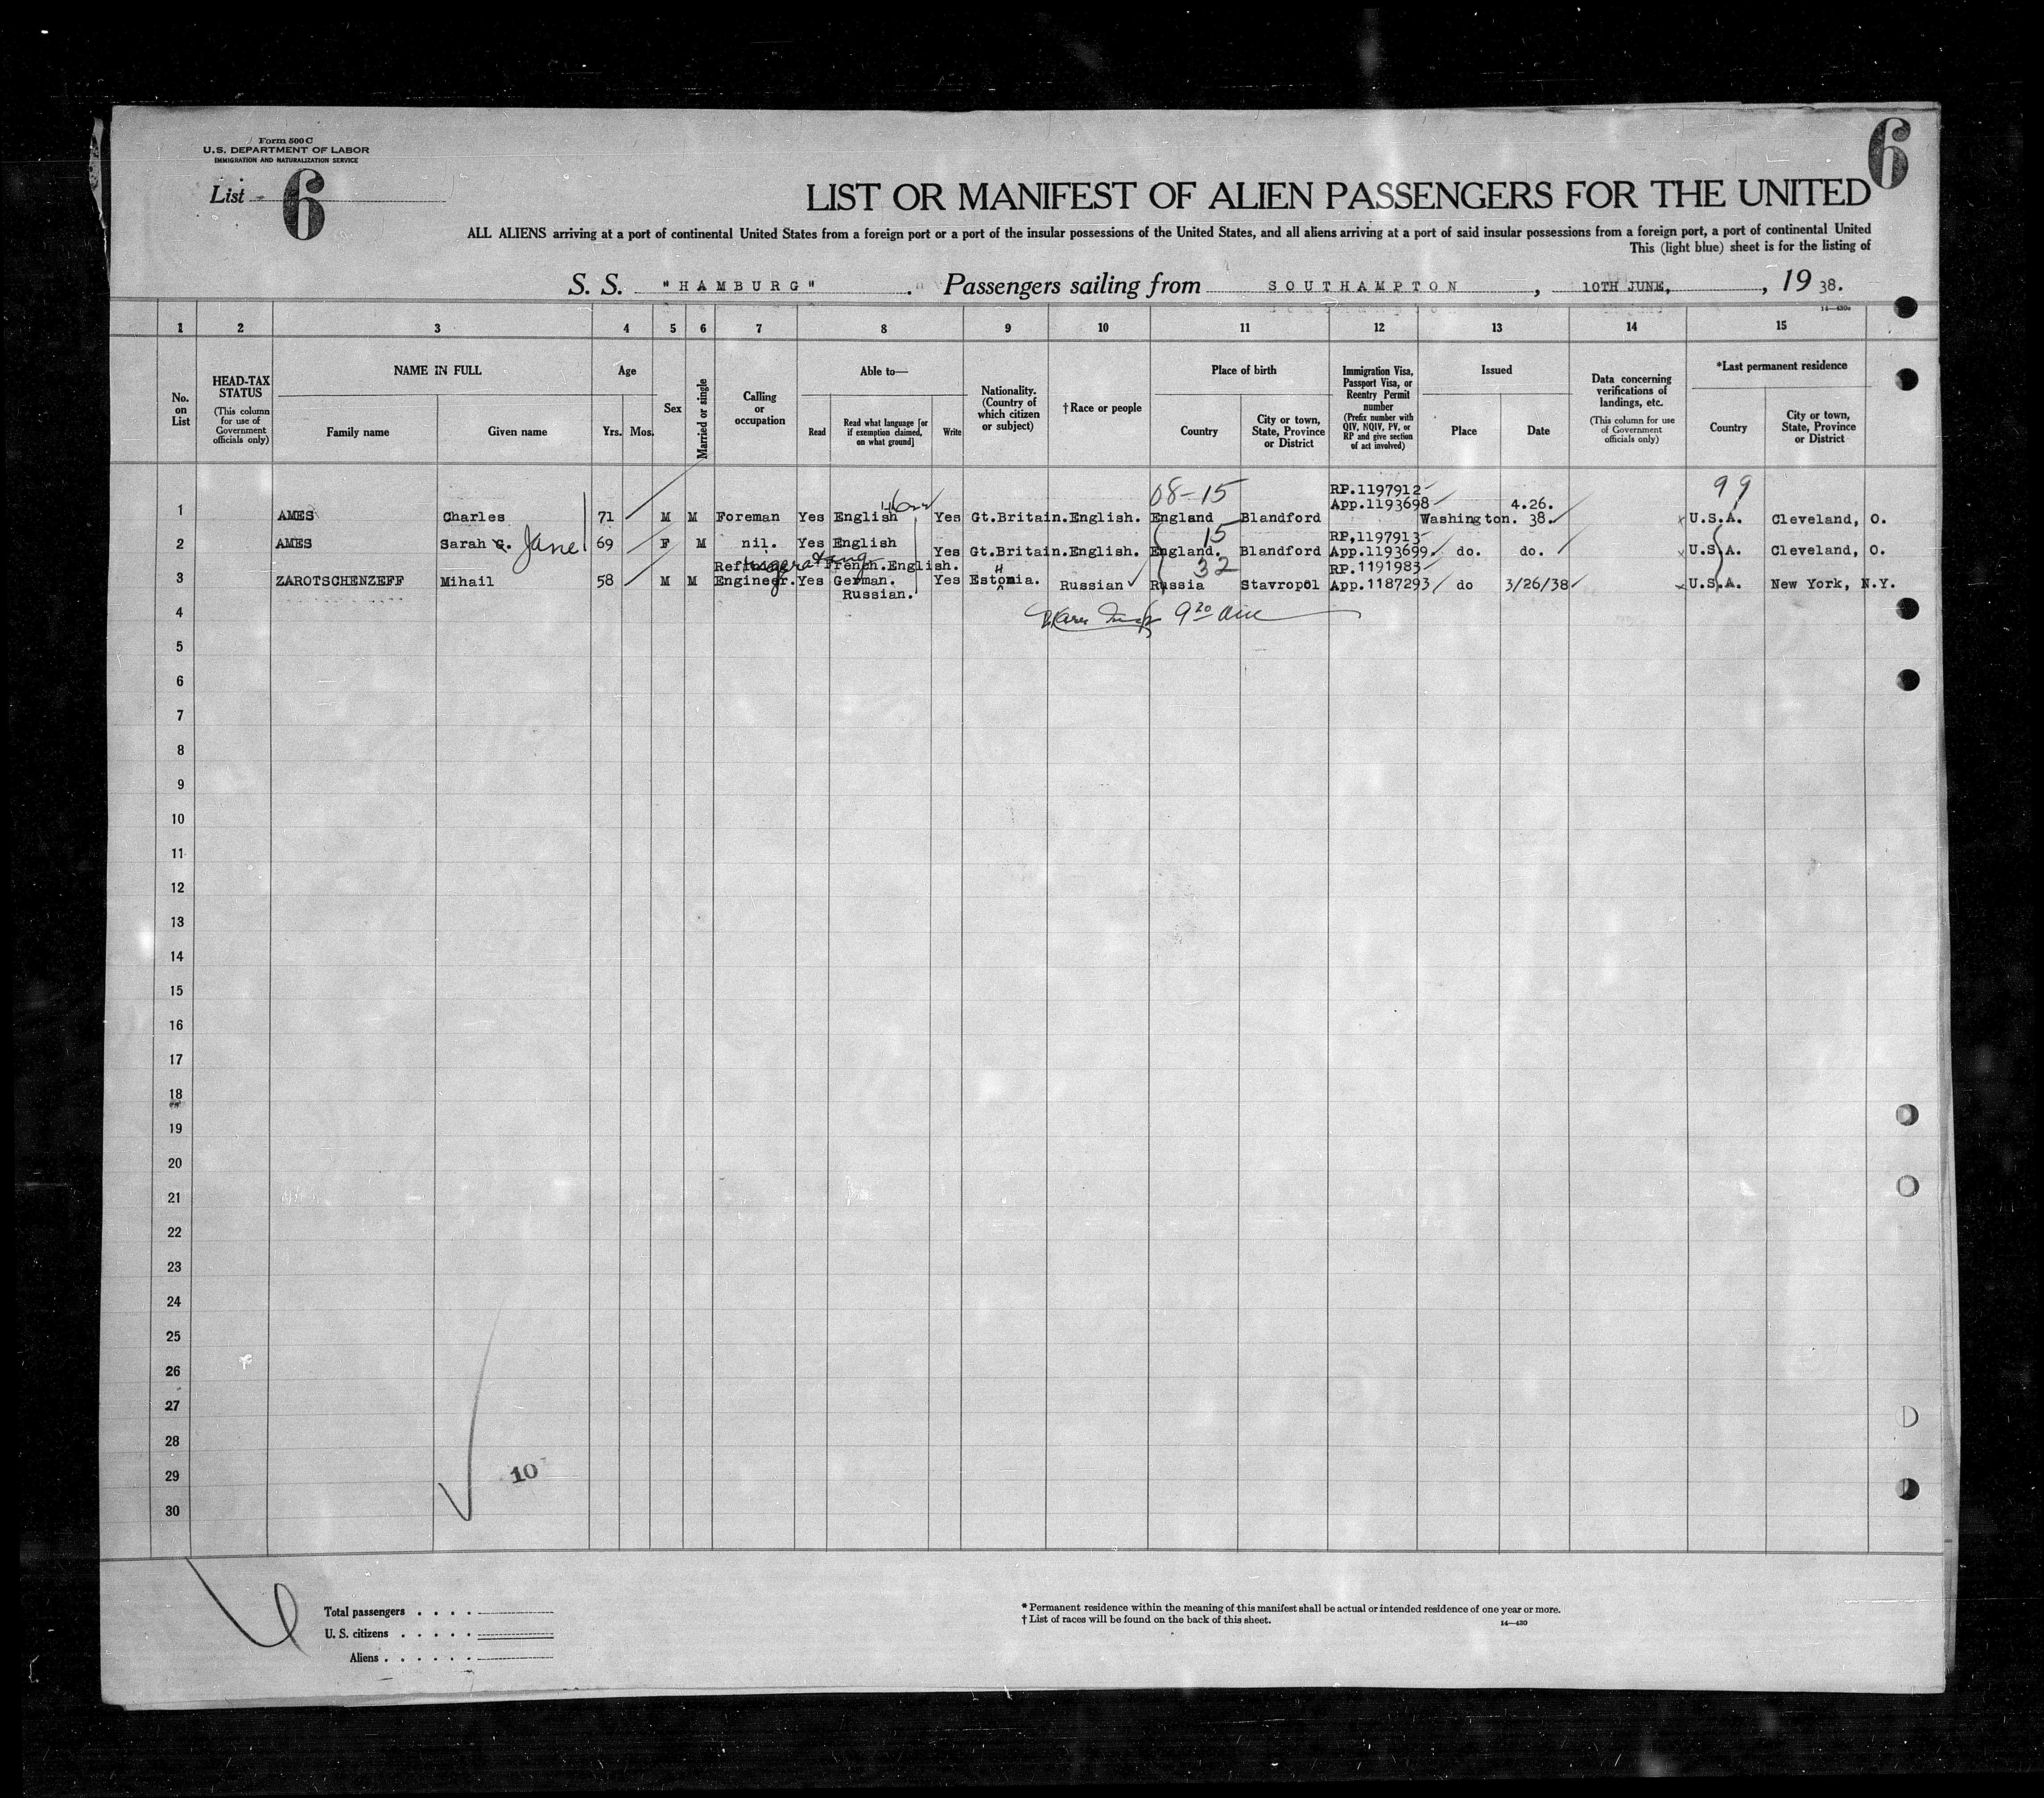 Form 500 C
U.S. DEPARTMENT OF LABOR
IMMIGRATION AND NATURALIZATION SERVICE
List 6
6
LIST OR MANIFEST OF ALIEN PASSENGERS FOR THE UNITED
ALL ALIENS arriving at a port of continental United States from a foreign port or a port of the insular possessions of the United States, and all aliens arriving at a port of said insular possessions from a foreign port, a port of continental United
This (light blue) sheet is for the listing of
S. S. "HAMBURG". Passengers sailing from SOUTHAMPTON, 10TH JUNE, , 19 38.
14—430a
1 2 3 4 5 6 7 8 9 10 11 12 13 14 15
No. on List
HEAD-TAX STATUS (This column for use of Government officials only)
NAME IN FULL
Family name
Given name
Age
Yrs. Mos.
Sex
Married or single
Calling or occupation
Able to—
Read
Read what language [or if exemption claimed, on what ground]
Write
Nationality. (Country of which citizen or subject)
†Race or people
Place of birth
Country
City or town, State, Province or District
Immigration Visa, Passport Visa, or Reentry Permit number (Prefix number with QIV, NQIV, PV, or RP and give section of act involved)
Issued
Place
Date
Data concerning verifications of landings, etc. (This column for use of Government officials only)
*Last permanent residence
Country
City or town, State, Province or District
08-15
99
RP.1197912
App.1193698 4.26.
1 AMES Charles 71 M M Foreman Yes English Yes Gt.Britain. English. England Blandford Washington. 38. U.S.A. Cleveland, O.
15
RP,1197913
2 AMES Sarah G. Jane 69 F M nil. Yes English Yes Gt.Britain. English. England. Blandford App.1193699 do. do. U.S.A. Cleveland, O.
French.English.
32
RP.1191983
3 ZAROTSCHENZEFF Mihail 58 M M Engineer. Yes German. Yes Estonia. Russian Russia Stavropol App.1187293 do 3/26/38 U.S.A. New York, N.Y.
H
Russian.
4
5
6
7
8
9
10
11
12
13
14
15
16
17
18
19
20
21
22
23
24
25
26
27
28
29
30
10
Total passengers
U. S. citizens
Aliens
* Permanent residence within the meaning of this manifest shall be actual or intended residence of one year or more.
† List of races will be found on the back of this sheet.
14—430